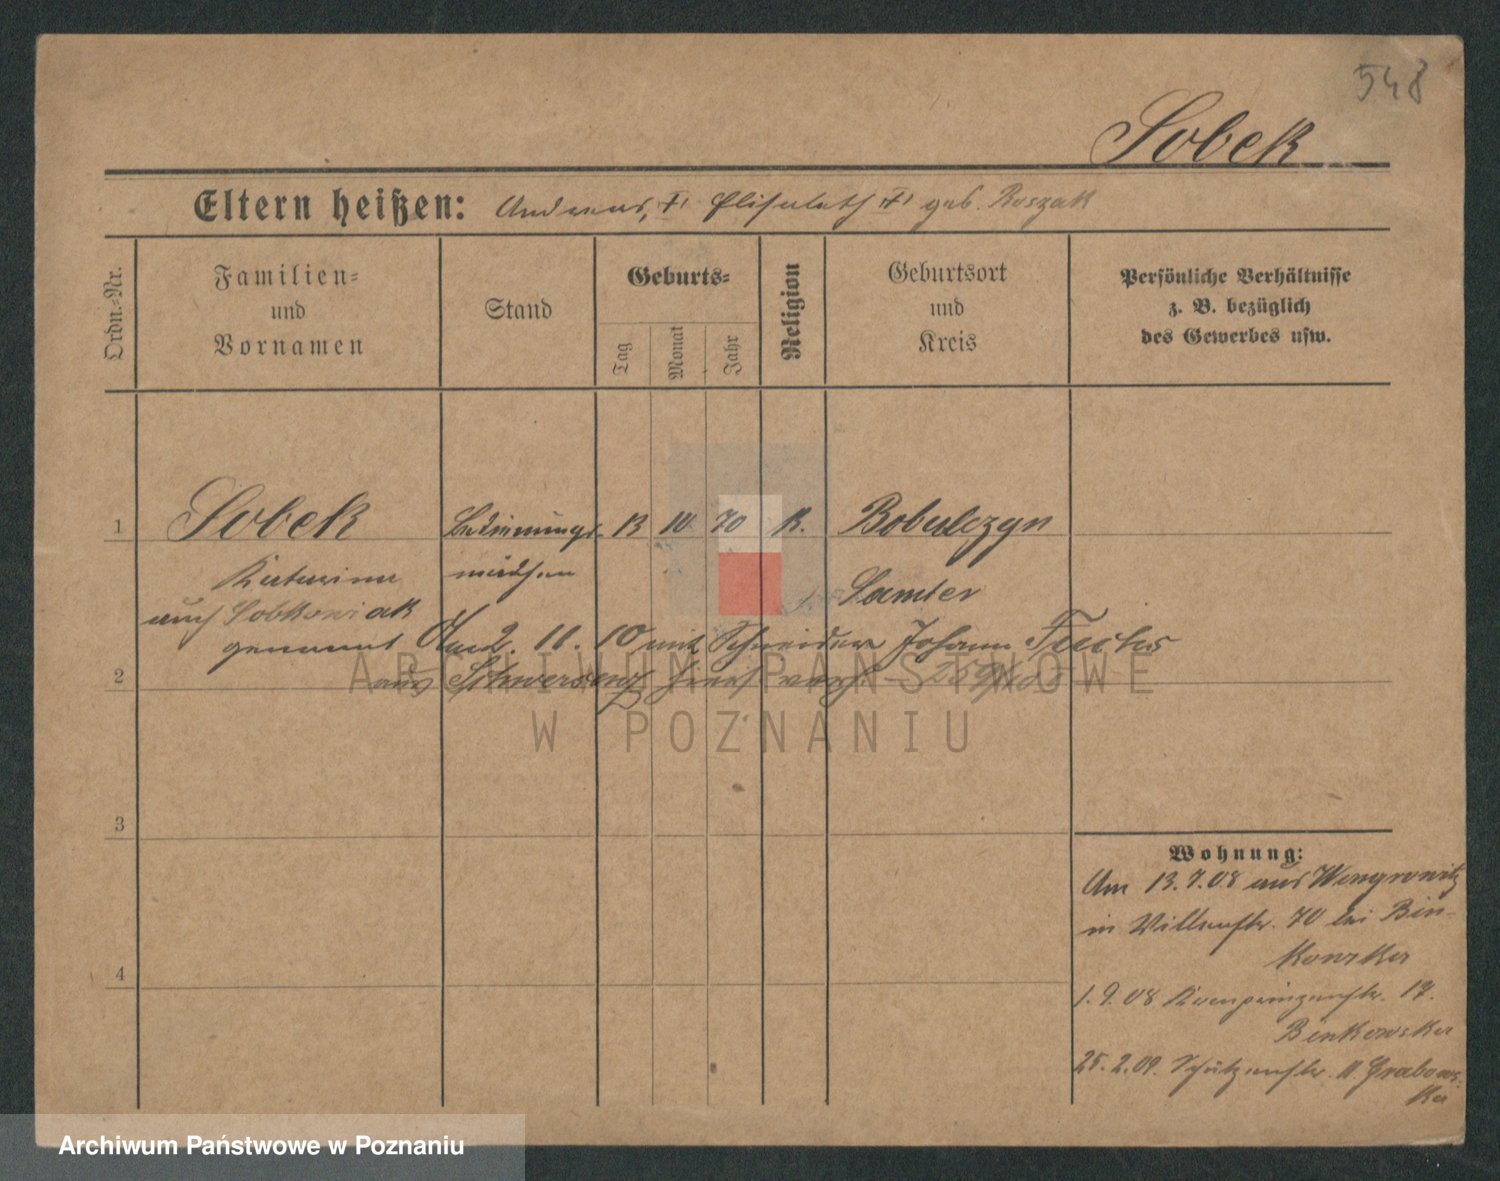 548
Sobek
Eltern heißen: Andreas, † Elisabeth † geb. Roszak
Ordn.=Nr.
Familien=
und
Vornamen
Stand
Geburts=
Tag
Monat
Jahr
Religion
Geburtsort
und
Kreis
Persönliche Verhältnisse
z. B. bezüglich
des Gewerbes usw.
1 Sobek Bedienungs- 13 10 70 K. Bobulczyn
Katarina mädchen Samter
auch Sobkowiak
genannt Am 2. 11. 10 mit Schneider Johann Fuchs
2 aus Schwersenz hier verh.
ARCHIWUM PAŃSTWOWE
W POZNANIU
3
4
Wohnung:
Am 13.7.08 aus Wongrowitz
in 70 bei Bin-
kowska
1.9.08 Kronprinzenstr. 17.
Binkowska
25.2.09. Schützenstr. 11 Grabows-
ka
Archiwum Państwowe w Poznaniu